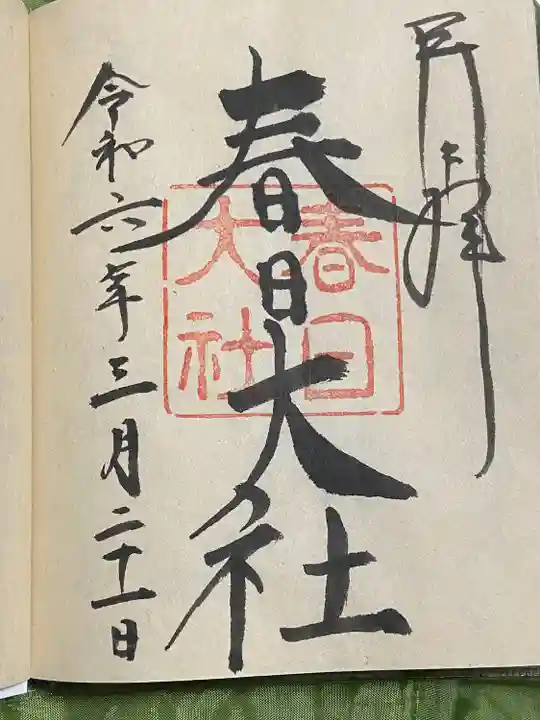 奉拝
春日大社
春日
大社
令和六年三月二十一日